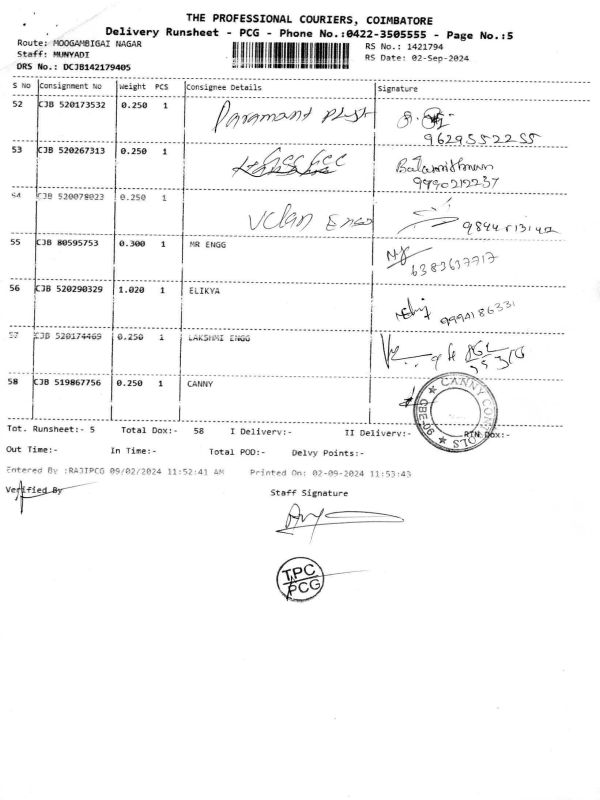 THE PROFESSIONAL COURIERS, COIMBATORE
Delivery Runsheet - PCG - Phone No.:0422-3505555 - Page No.:5
Route: MOOGAMBIGAI NAGAR
RS No.: 1421794
Staff: MUNYADI
RS Date: 02-Sep-2024
DRS No.: DCJB142179405
S No Consignment No Weight PCS Consignee Details Signature
52 CJB 520173532 0.250 1 Paramant
9629552255
53 CJB 520267313 0.250 1
9790212237
54 CJB 520078023 0.250 1 Vclan Engg
55 CJB 80595753 0.300 1 MR ENGG
6383637717
56 CJB 520290329 1.020 1 ELIKYA
9994186331
57 CJB 520174469 0.250 1 LAKSHMI ENGG
58 CJB 519867756 0.250 1 CANNY
CANNY
GBE-06
Tot. Runsheet:- 5 Total Dox:- 58 I Delivery:- II Delivery:- RTN Dox:-
Out Time:- In Time:- Total POD:- Delvy Points:-
Entered By :RAJIPCG 09/02/2024 11:52:41 AM Printed On: 02-09-2024 11:53:43
Verified By
Staff Signature
TPC
PCG